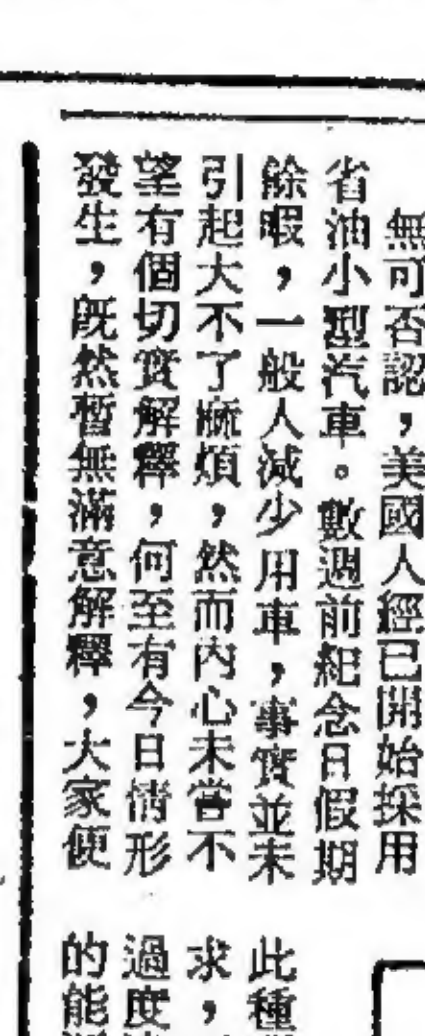 無可否認，美國人經已開始採用
省油小型汽車。數週前紀念日假期
餘暇，一般人減少用車，事實並未
引起大不了麻煩，然而內心未嘗不
望有個切實解釋，何至有今日情形
發生，既然暫無滿意解釋，大家便
此種
求，
過度
的能